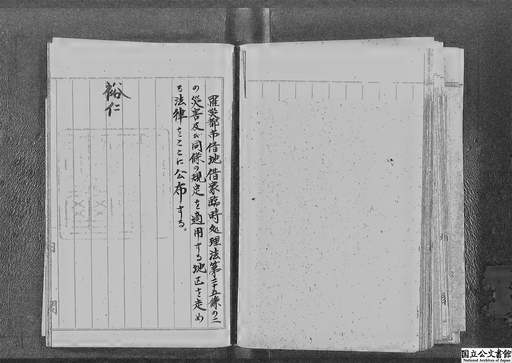 罹災都市借地借家臨時処理法第二十五條の二
の災害及び同條の規定を適用する地区を定め
る法律をここに公布する。
裕仁
国立公文書館
National Archives of Japan